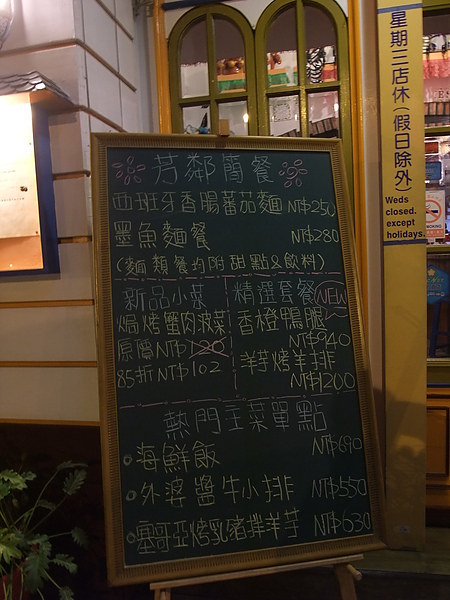 芳鄰簡餐
西班牙香腸蕃茄麵 NT$250
墨魚麵餐 NT$280
(麵類餐均附甜點&飲料)
新品小菜
焗烤蟹肉波菜
原價NT$120
85折NT$102
精選套餐 NEW
香橙鴨腿
NT$940
羊芋烤羊排
NT$1200
熱門主菜單點
海鮮飯 NT$690
外婆醬牛小排 NT$550
塞哥亞烤乳豬拌羊芋 NT$630
星期三店休(假日除外)
Weds
closed.
except
holidays.